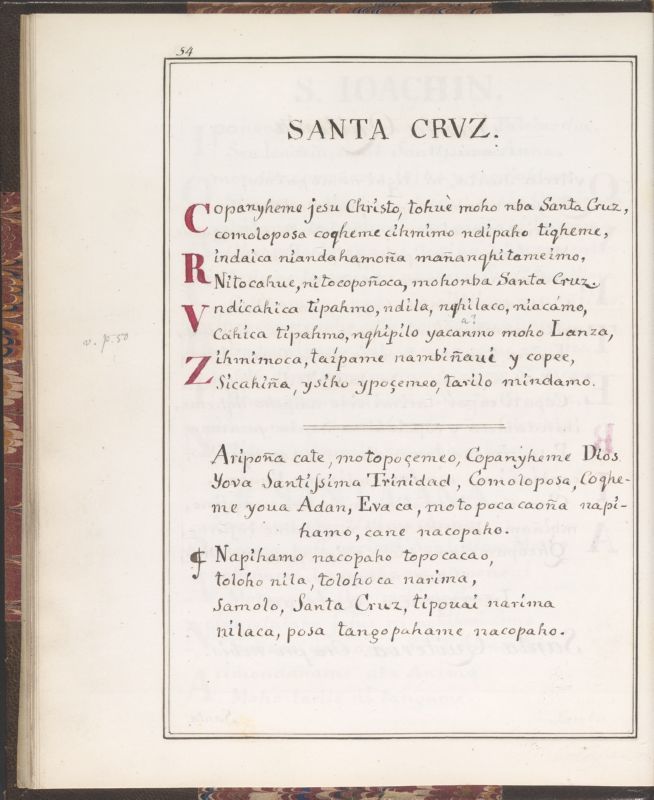 54
SANTA CRVZ.
Copanyheme jesú Christo, tohuè moho nba Santa Cruz,
comoloposa coqheme cihmimo ndipaho tiqheme,
Rindaica niandahamoña mañanqhitameimo,
Nitocahue, nitocopoñoca, mohonba Santa Cruz.
Vndicáhica tipahmo, ndila, nqhilaco, niacámo,
a?
Cáhica tipahmo, nghipilo yacanmo moho Lanza,
Zihmimoca, taípame nambiñaui y copee,
Sicahiña, ysiho ypoçemeo, tarilo mindamo.
v. p. 50
Aripoña cate, motopoçemeo, Copanyheme Dios
Yova Santissima Trinidad, Comoloposa, Coqhe-
me youa Adan, Eva ca, motopocacaoña napi-
hamo, cane nacopaho.
Napihamo nacopaho topocacao,
toloho nila, toloho ca narima,
Samolo, Santa Cruz, tipouai narima
nilaca, posa tangopahame nacopaho.